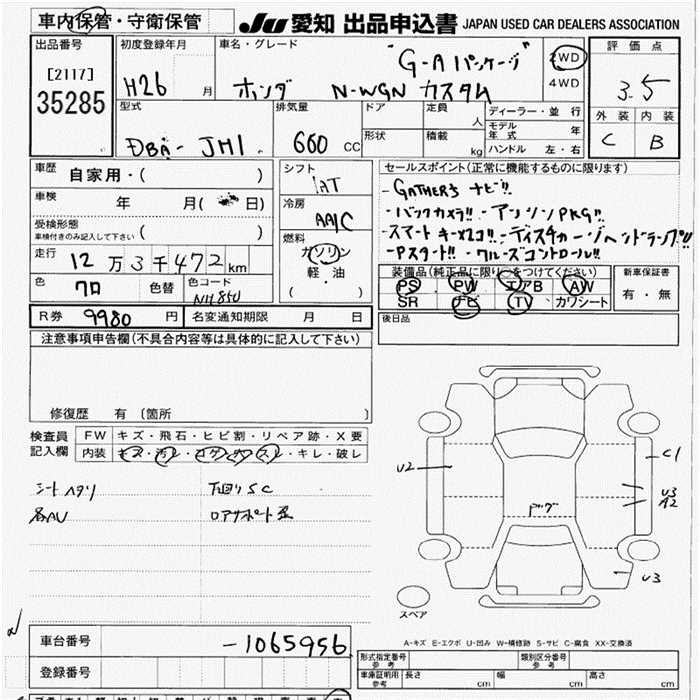 車内保管・守衛保管
JU 愛知 出品申込書 JAPAN USED CAR DEALERS ASSOCIATION
出品番号
[2117]
35285
初度登録年月
H26 月
車名・グレード
"G-Aパッケージ"
ホンダ N-WGN カスタム
2WD
4WD
評価点
3.5
外装 内装
C B
型式
DBA- JH1
排気量
660 CC
ドア
形状
定員
人
積載
kg
ディーラー・並行
モデル年式 年
ハンドル 左・右
車歴
自家用・( )
車検
年 月( 日)
受検形態
車検付きのみ記入して下さい ( )
走行
12万3千472km
色
クロ
色替
色コード
NH85U
R券 9980円
名変通知期限 月 日
シフト
IAT
冷房
AAC
燃料
ガソリン
軽・油
( )
セールスポイント(正常に機能するものに限ります)
- GATHERS ナビ!!
- バックカメラ!! - アンシンPKG!!
- スマートキーX2コ!! - ディスチャージヘッドランプ!!
- Pスタート!! - クルーズコントロール!!
装備品(純正品に限り○をつけてください)
PS PW エアB AW
SR ナビ TV カワシート
新車保証書
有・無
後日品
注意事項申告欄(不具合内容等は具体的に記入して下さい)
修復歴 有 (箇所 )
検査員記入欄
FW キズ・飛石・ヒビ割・リペア跡・X要
内装 キズ・汚レ・コゲ・穴・スレ・キレ・破レ
シートヘタリ 下回りSC
各AU ロアサポート歪
U2
C1
U3
A2
ドアグ
U3
スペア
A-キズ E-エクボ U-凹み W-補修跡 S-サビ C-腐食 XX-交換済
車台番号 -1065956
登録番号
形式指定番号 参考
類別区分番号 参考
車庫証明用 参考
長さ cm 幅 cm 高さ cm